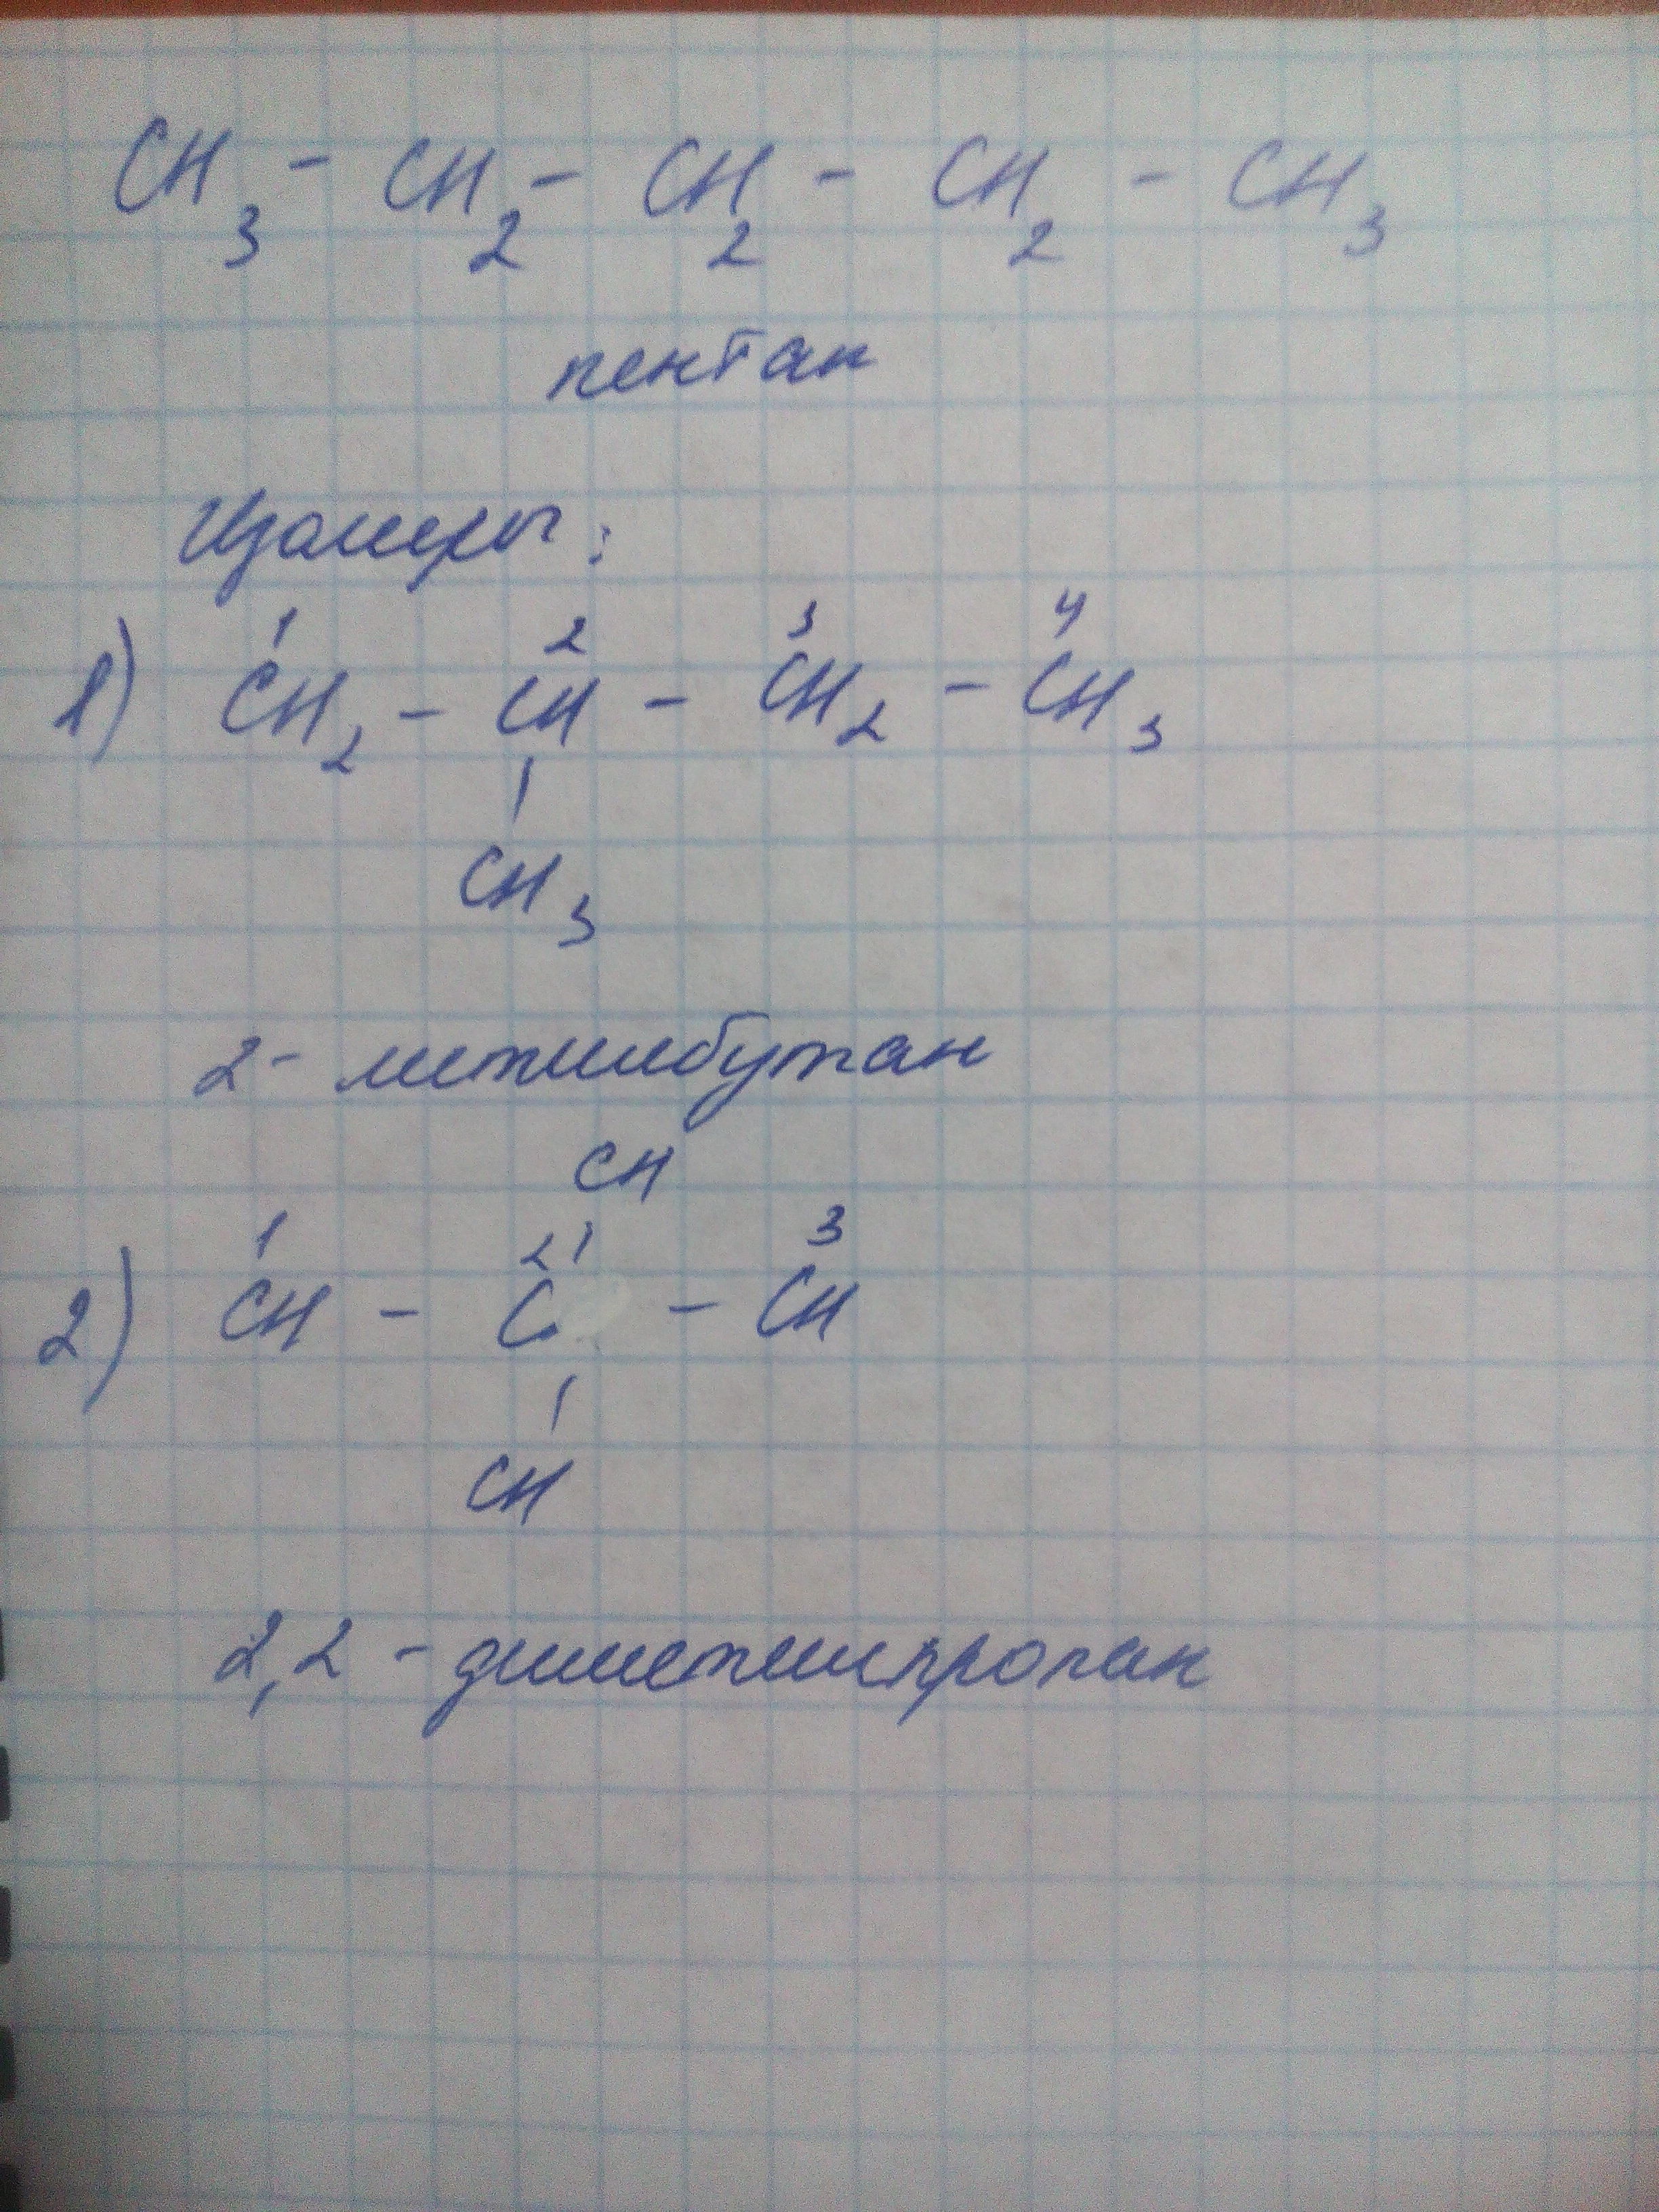 CH₃ - CH₂ - CH₂ - CH₂ - CH₃
пентан
Изомеры:
1 2 3 4
1) CH₂ - CH - CH₂ - CH₃
|
CH₃
2 - метилбутан
CH
1 2 | 3
2) CH - C - CH
|
CH
2,2 - диметилпропан